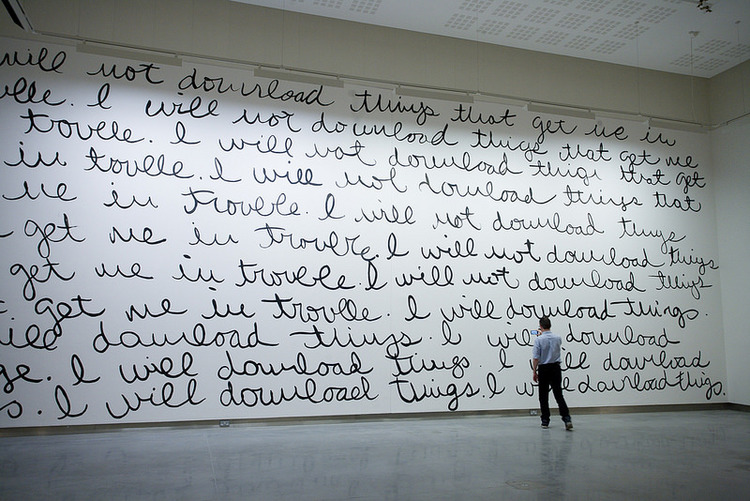 will not download things that get me in
I will not download things that get me
trouble. I will not download things that get
in trouble. I will not download things that
me in trouble. I will not download things
get me in trouble. I will not download things
get me in trouble. I will not download things
get me in trouble. I will download things.
will download things. I will download
I will download things. I will download
s. I will download things. I will download things.